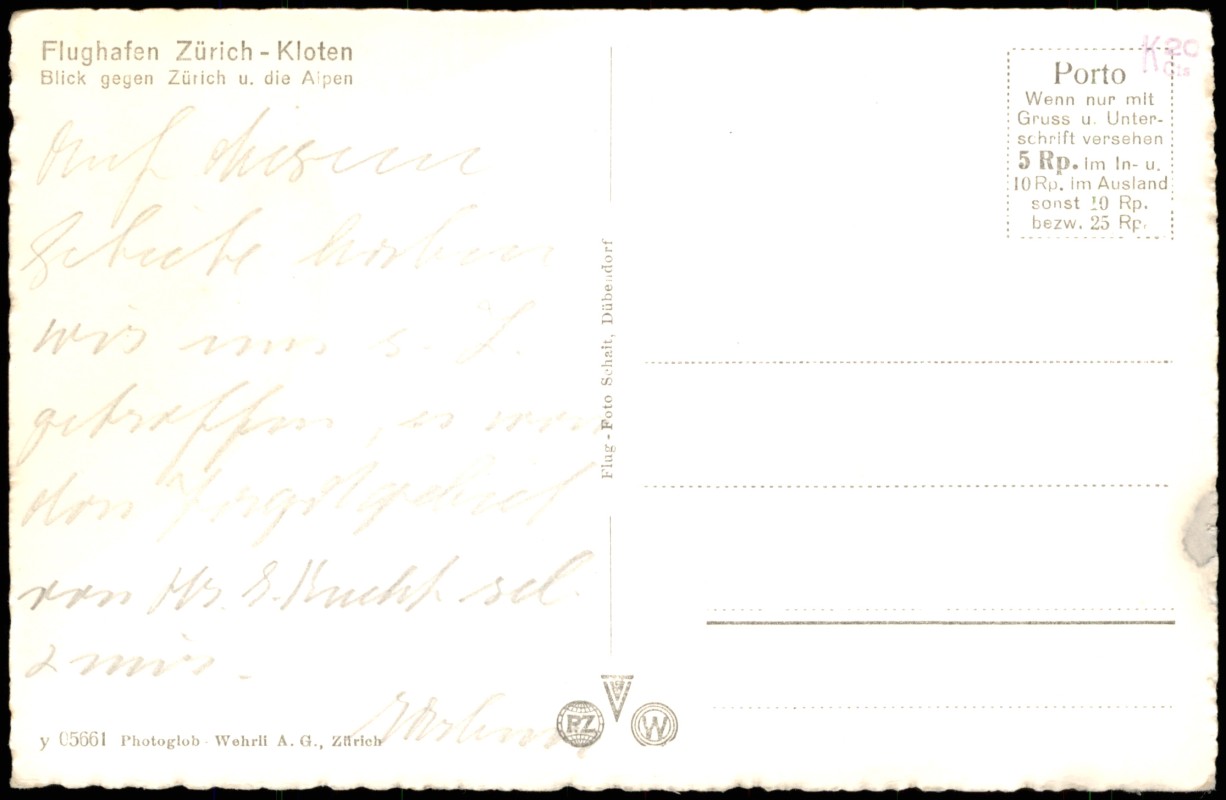 Flughafen Zürich - Kloten
Blick gegen Zürich u. die Alpen
Auf diesem
Gebiete haben
wir uns s. Z.
getroffen, es war
das
von Hr.
& mir.
y 05661 Photoglob - Wehrli A. G., Zürich
Flug - Foto Schait, Dübendorf
RZ
W
K 20
Cts
Porto
Wenn nur mit
Gruss u. Unter-
schrift versehen
5 Rp. im In- u.
10 Rp. im Ausland
sonst 10 Rp.
bezw. 25 Rp.